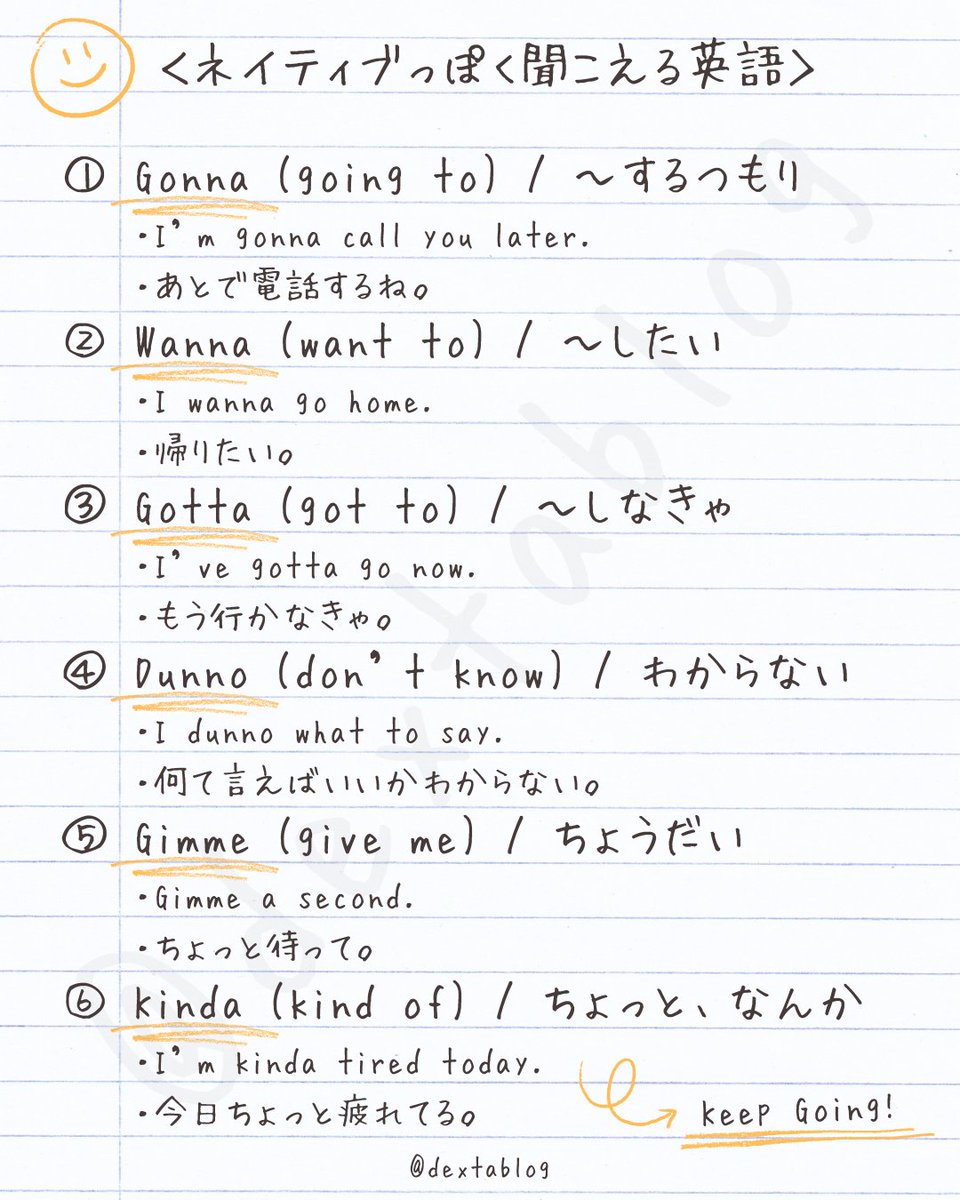 <ネイティブっぽく聞こえる英語>
① Gonna (going to) / ～するつもり
・I'm gonna call you later.
・あとで電話するね。
② Wanna (want to) / ～したい
・I wanna go home.
・帰りたい。
③ Gotta (got to) / ～しなきゃ
・I've gotta go now.
・もう行かなきゃ。
④ Dunno (don't know) / わからない
・I dunno what to say.
・何て言えばいいかわからない。
⑤ Gimme (give me) / ちょうだい
・Gimme a second.
・ちょっと待って。
⑥ kinda (kind of) / ちょっと、なんか
・I'm kinda tired today.
・今日ちょっと疲れてる。
keep Going!
@dextablog
@dextablog